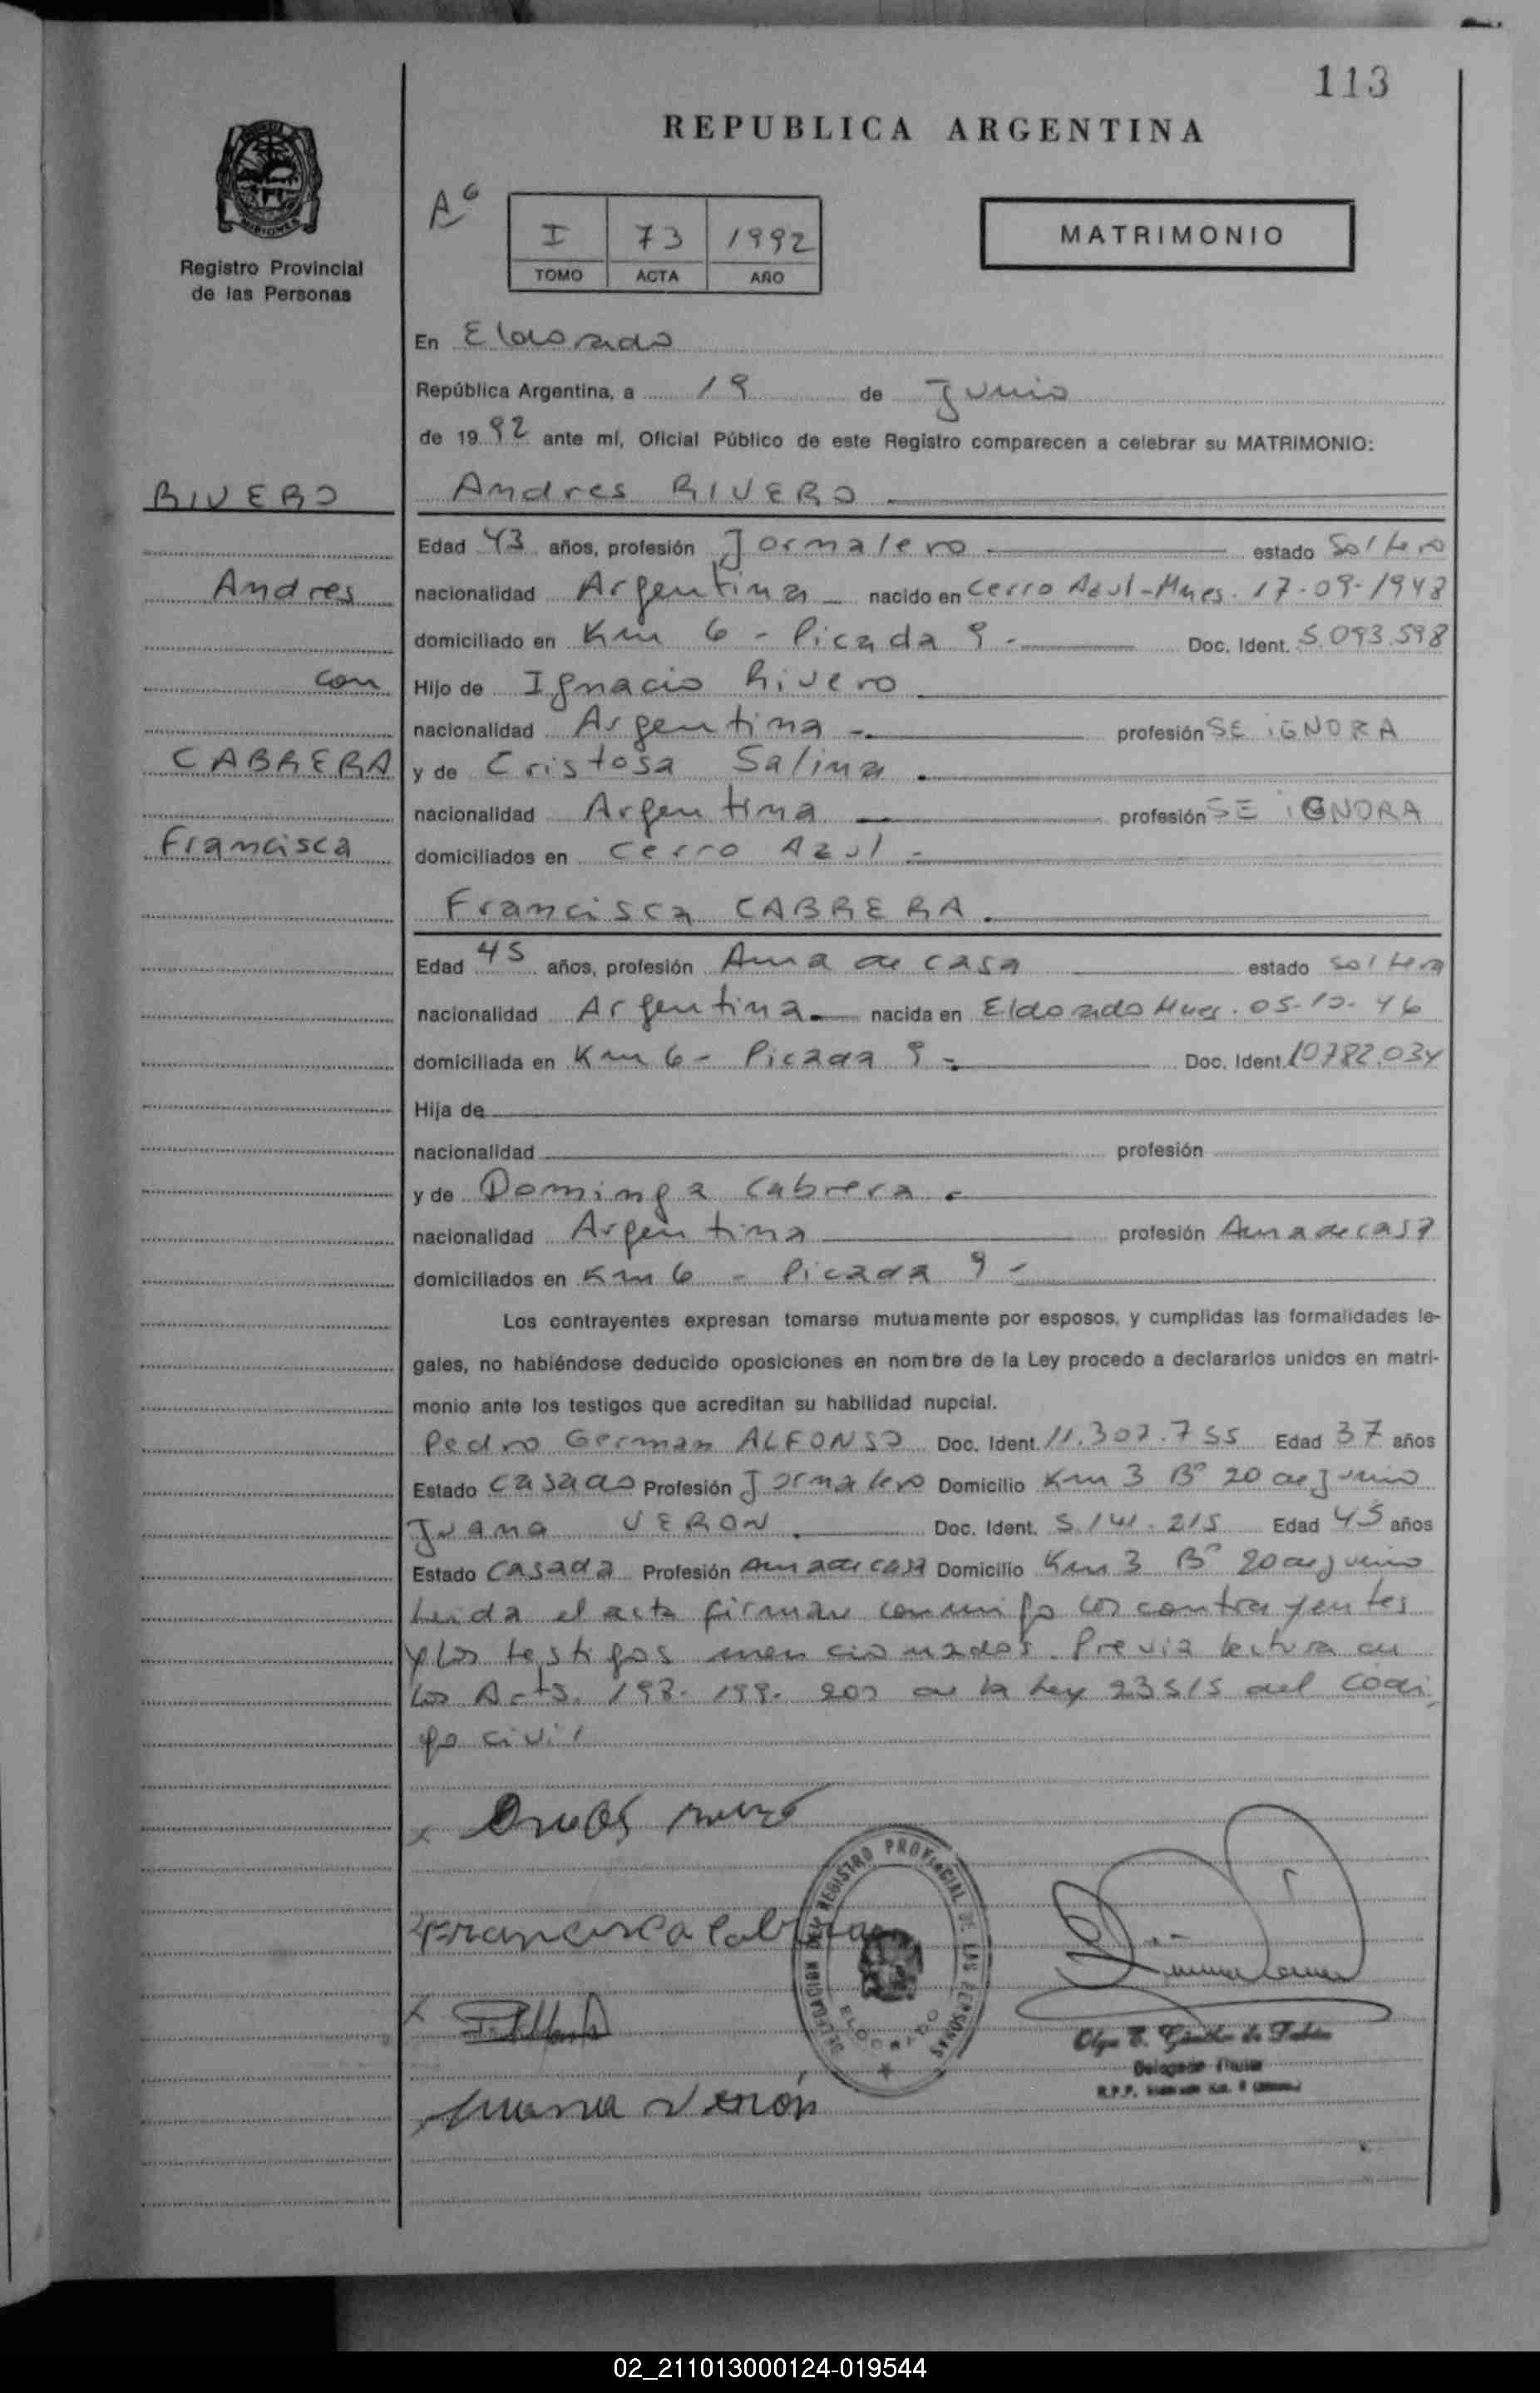 113
REPUBLICA ARGENTINA
MISIONES
Registro Provincial
de las Personas
I 73 1992
TOMO ACTA AÑO
MATRIMONIO
En Eldorado
República Argentina, a 19 de Junio
de 1992 ante mí, Oficial Público de este Registro comparecen a celebrar su MATRIMONIO:
RIVERO
Andres RIVERO
Edad 43 años, profesión Jornalero estado Soltero
Andres
nacionalidad Argentina nacido en Cerro Azul-Mnes. 17-09-1948
domiciliado en Km 6 - Picada 9 - Doc. Ident. 5.093.598
con
Hijo de Ignacio Rivero
nacionalidad Argentina - profesión SE iGNORA
CABRERA
y de Cristosa Salina
nacionalidad Argentina profesión SE iGNORA
Francisca
domiciliados en Cerro Azul -
Francisca CABRERA.
Edad 45 años, profesión Ama de casa estado soltera
nacionalidad Argentina nacida en Eldorado Mnes. 05-10-46
domiciliada en Km 6 - Picada 9 - Doc. Ident. 10782.034
Hija de
nacionalidad profesión
y de Dominga Cabrera.
nacionalidad Argentina profesión Ama de casa
domiciliados en Km 6 - Picada 9 -
Los contrayentes expresan tomarse mutuamente por esposos, y cumplidas las formalidades le-
gales, no habiéndose deducido oposiciones en nombre de la Ley procedo a declararlos unidos en matri-
monio ante los testigos que acreditan su habilidad nupcial.
Pedro German ALFONSO Doc. Ident. 11.307.755 Edad 37 años
Estado Casado Profesión Jornalero Domicilio Km 3 Bº 20 de junio
Juana VERON Doc. Ident. 5.141.215 Edad 45 años
Estado Casada Profesión Ama de casa Domicilio Km 3 Bº 20 de junio
Leida el acta firman conmigo los contrayentes
y los testigos mencionados. Previa lectura de
los Arts. 198. 199. 200 de la Ley 23515 del Codi
go civil
Francisca Cabrera
DELEGACION DEL REGISTRO PROVINCIAL DE LAS PERSONAS
ELDORADO
Juana Verón
Delegado Titular
02_211013000124-019544